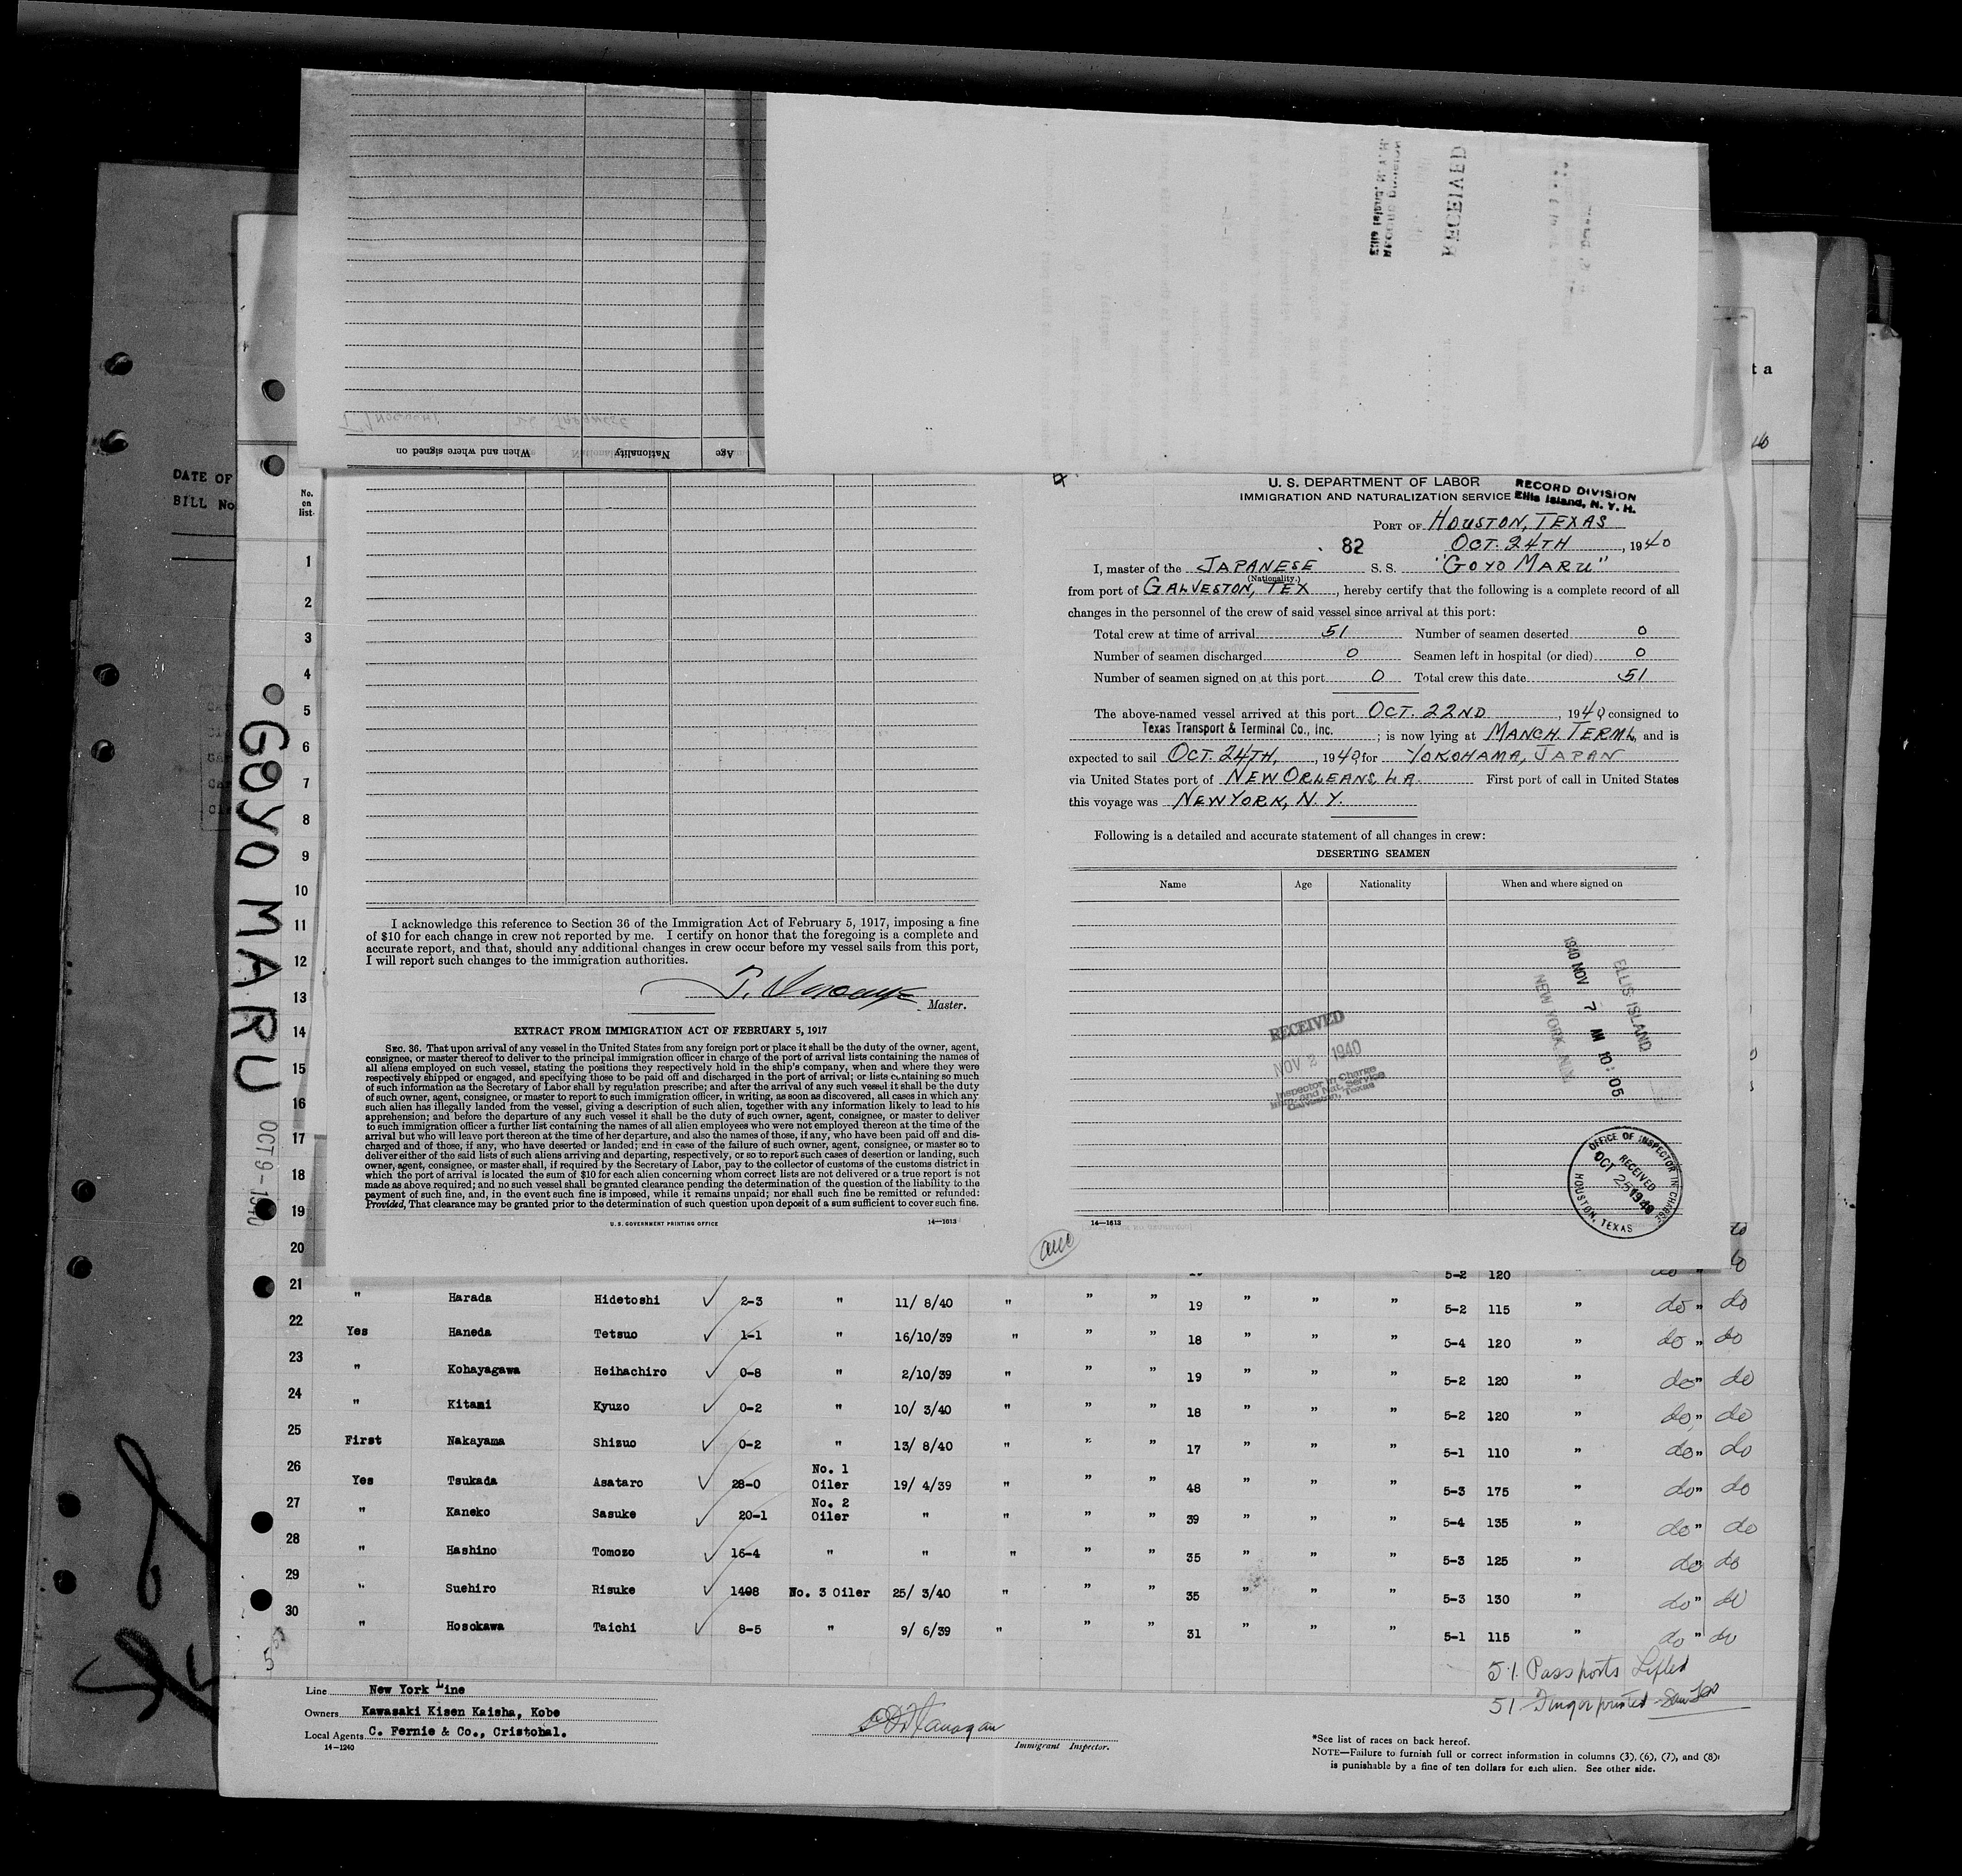 Ellis Island, N. Y. H.
RECORD DIVISION
RECEIVED
When and where signed on
Nationality
Age
T. INOGUCHI
JAPANESE
DATE OF
BILL No
ta
No.
on
list.
U. S. DEPARTMENT OF LABOR
IMMIGRATION AND NATURALIZATION SERVICE
RECORD DIVISION
Ellis Island, N. Y. H.
PORT OF HOUSTON, TEXAS
82
OCT. 24TH, 1940
I, master of the JAPANESE S. S. "GOYO MARU"
(Nationality.)
from port of GALVESTON, TEX, hereby certify that the following is a complete record of all
changes in the personnel of the crew of said vessel since arrival at this port:
Total crew at time of arrival 51 Number of seamen deserted 0
Number of seamen discharged 0 Seamen left in hospital (or died) 0
Number of seamen signed on at this port 0 Total crew this date 51
The above-named vessel arrived at this port OCT. 22ND, 1940 consigned to
Texas Transport & Terminal Co., Inc. ; is now lying at MANCH. TERML, and is
expected to sail OCT. 24TH, 1940, for YOKOHAMA, JAPAN
via United States port of NEW ORLEANS, LA. First port of call in United States
this voyage was NEW YORK, N. Y.
Following is a detailed and accurate statement of all changes in crew:
DESERTING SEAMEN
Name Age Nationality When and where signed on
ELLIS ISLAND
1940 NOV 7 AM 10:05
NEW YORK, N.Y.
RECEIVED
NOV 2 1940
Inspector in Charge
Imm. and Nat. Service
Galveston, Texas
OFFICE OF INSPECTOR IN CHARGE
RECEIVED
OCT 25 1940
HOUSTON, TEXAS
14—1613
I acknowledge this reference to Section 36 of the Immigration Act of February 5, 1917, imposing a fine
of $10 for each change in crew not reported by me. I certify on honor that the foregoing is a complete and
accurate report, and that, should any additional changes in crew occur before my vessel sails from this port,
I will report such changes to the immigration authorities.
Master.
EXTRACT FROM IMMIGRATION ACT OF FEBRUARY 5, 1917
SEC. 36. That upon arrival of any vessel in the United States from any foreign port or place it shall be the duty of the owner, agent,
consignee, or master thereof to deliver to the principal immigration officer in charge of the port of arrival lists containing the names of
all aliens employed on such vessel, stating the positions they respectively hold in the ship's company, when and where they were
respectively shipped or engaged, and specifying those to be paid off and discharged in the port of arrival; or lists containing so much
of such information as the Secretary of Labor shall by regulation prescribe; and after the arrival of any such vessel it shall be the duty
of such owner, agent, consignee, or master to report to such immigration officer, in writing, as soon as discovered, all cases in which any
such alien has illegally landed from the vessel, giving a description of such alien, together with any information likely to lead to his
apprehension; and before the departure of any such vessel it shall be the duty of such owner, agent, consignee, or master to deliver
to such immigration officer a further list containing the names of all alien employees who were not employed thereon at the time of the
arrival but who will leave port thereon at the time of her departure, and also the names of those, if any, who have been paid off and dis-
charged and of those, if any, who have deserted or landed; and in case of the failure of such owner, agent, consignee, or master so to
deliver either of the said lists of such aliens arriving and departing, respectively, or so to report such cases of desertion or landing, such
owner, agent, consignee, or master shall, if required by the Secretary of Labor, pay to the collector of customs of the customs district in
which the port of arrival is located the sum of $10 for each alien concerning whom correct lists are not delivered or a true report is not
made as above required; and no such vessel shall be granted clearance pending the determination of the question of the liability to the
payment of such fine, and, in the event such fine is imposed, while it remains unpaid; nor shall such fine be remitted or refunded:
Provided, That clearance may be granted prior to the determination of such question upon deposit of a sum sufficient to cover such fine.
U. S. GOVERNMENT PRINTING OFFICE 14—1613
GOYO MARU OCT 9 - 1940
1
2
3
4
5
6
7
8
9
10
11
12
13
14
15
16
17
18
19
20
5-2 120
21 " Harada Hidetoshi ✓ 2-3 " 11/ 8/40 " " " 19 " " " 5-2 115 " do " do
22 Yes Haneda Tetsuo ✓ 1-1 " 16/10/39 " " " 18 " " " 5-4 120 " do " do
23 " Kohayagawa Heihachiro ✓ 0-8 " 2/10/39 " " " 19 " " " 5-2 120 " do " do
24 " Kitami Kyuzo ✓ 0-2 " 10/ 3/40 " " " 18 " " " 5-2 120 " do " do
25 First Nakayama Shizuo ✓ 0-2 " 13/ 8/40 " " " 17 " " " 5-1 110 " do " do
26 Yes Tsukada Asataro ✓ 28-0 No. 1 Oiler 19/ 4/39 " " " 48 " " " 5-3 175 " do " do
27 " Kaneko Sasuke ✓ 20-1 No. 2 Oiler " " " " 39 " " " 5-4 135 " do " do
28 " Hashino Tomozo ✓ 16-4 " " " " " 35 " " " 5-3 125 " do " do
29 " Suehiro Risuke ✓ 1408 No. 3 Oiler 25/ 3/40 " " " 35 " " " 5-3 130 " do " do
30 " Hosokawa Taichi ✓ 8-5 " 9/ 6/39 " " " 31 " " " 5-1 115 " do " do
51 Passports Lifted
51 Fingerprinted
Line New York Line
Owners Kawasaki Kisen Kaisha, Kobe
Local Agents C. Fernie & Co., Cristobal.
14—1240
Immigrant Inspector.
*See list of races on back hereof.
NOTE—Failure to furnish full or correct information in columns (3), (6), (7), and (8)
is punishable by a fine of ten dollars for each alien. See other side.